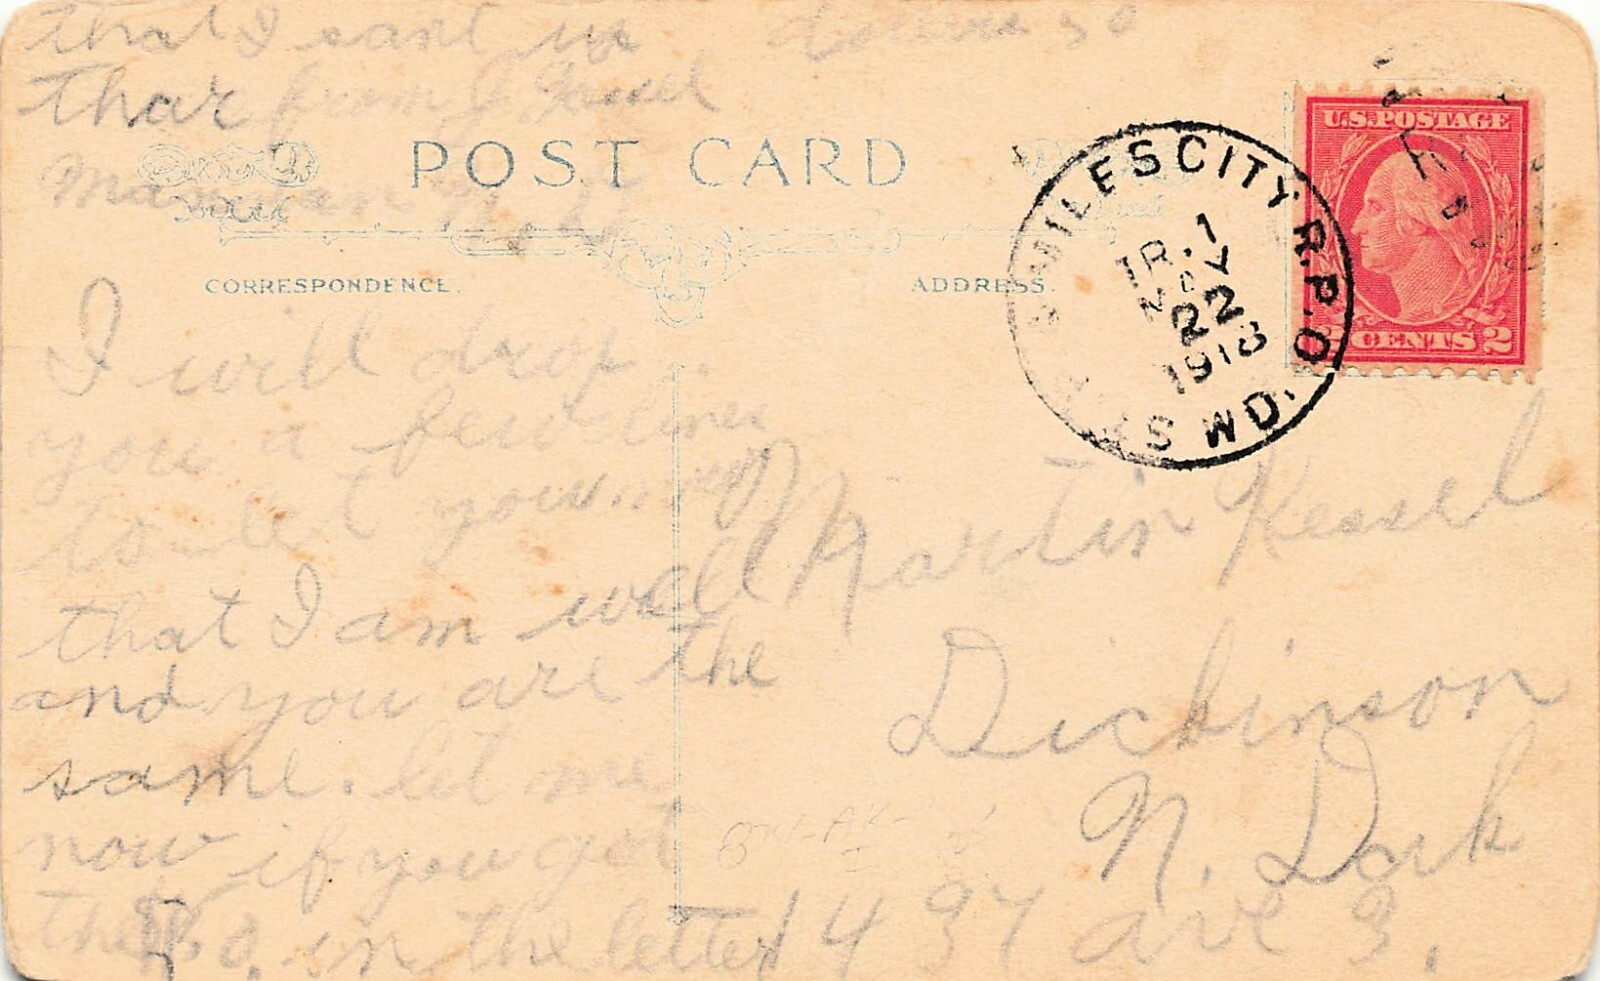 that I sant in dollers 30
thar from J Kessel
Mandan N.
POST CARD
CORRESPONDENCE.
ADDRESS.
MILES CITY R.P.O.
TR. 1
MAY
22
1918
WD.
U.S. POSTAGE
2 CENTS 2
I will drop
you a few lines
to let you
that I am well
and you are the
same. let me
now if you got
the in the letter
Martin Kessel
Dickinson
N. Dak
1437 ave 3.